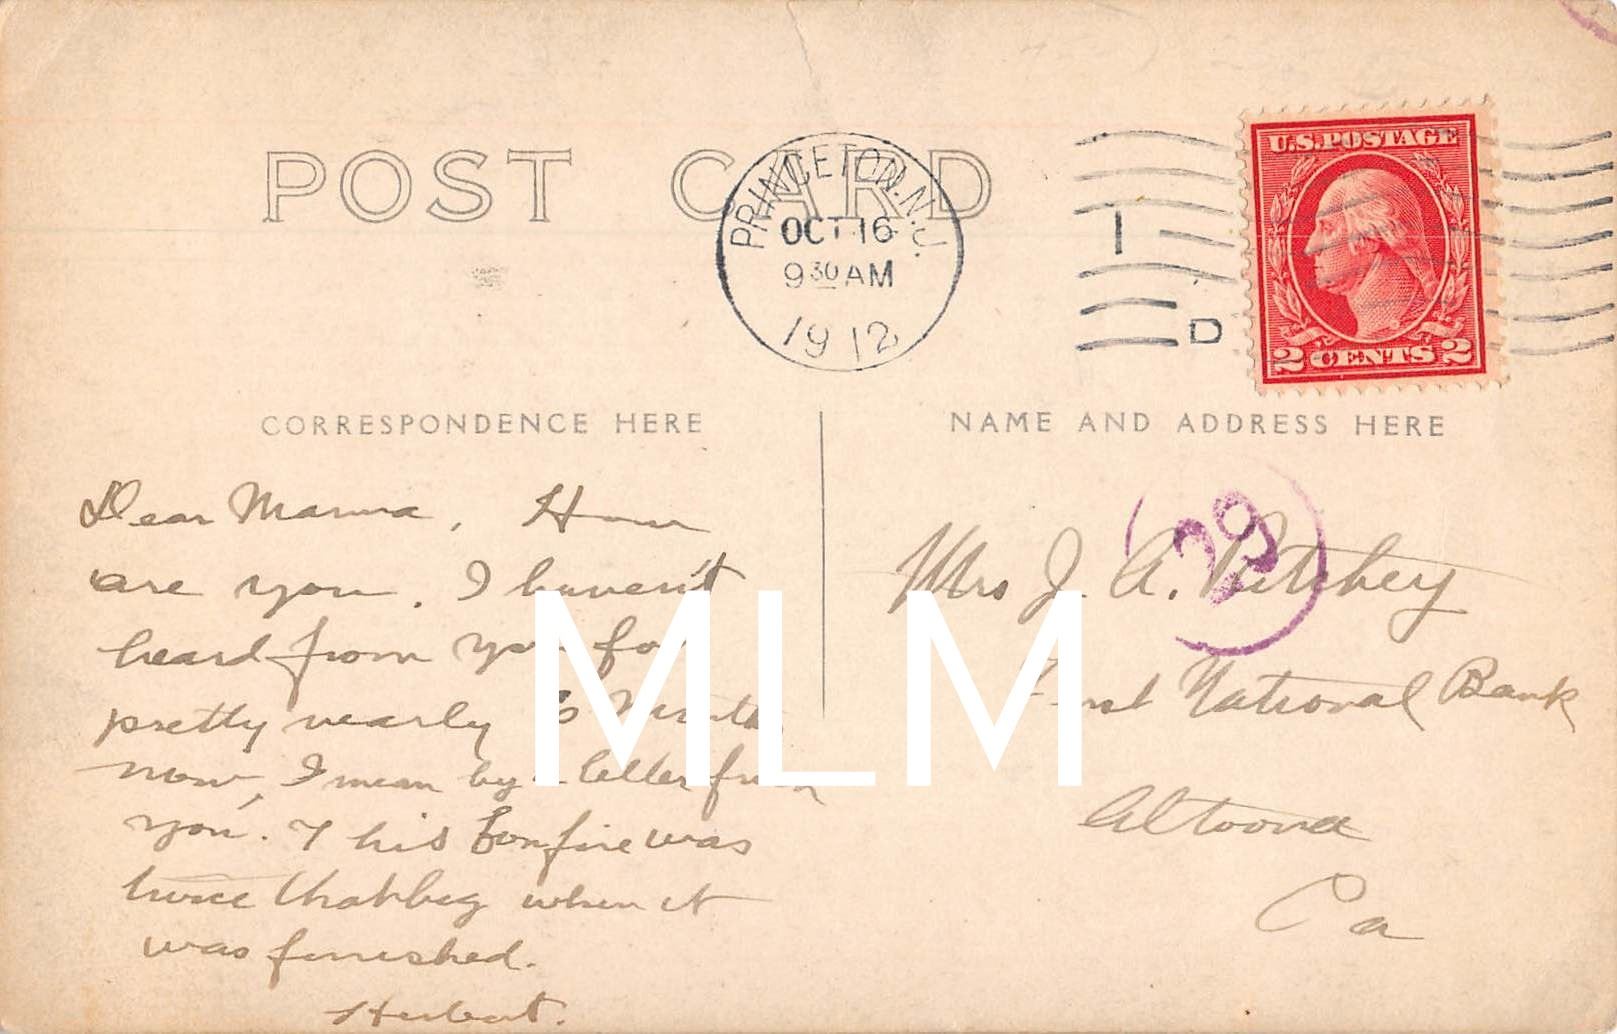 POST CARD
PRINCETON, N.J.
OCT 16
9 30 AM
1912
1
D
U.S. POSTAGE
2 CENTS 2
CORRESPONDENCE HERE
NAME AND ADDRESS HERE
Dear Mamma, How
are you. I haven't
heard from you for
pretty nearly 6 Months
now, I mean by a letter from
you. This bonfire was
twice that big when it
was finished.
Herbert.
29
Mrs J. A.
First National Bank
Altoona
Pa
MLM